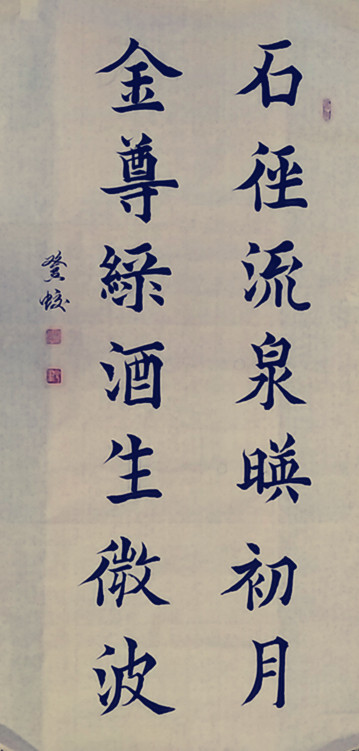 石径流泉暎初月
金尊綠酒生微波